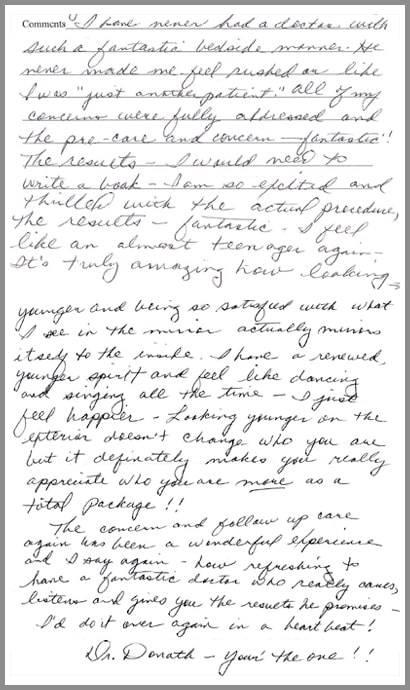 Comments "I have never had a doctor with
such a fantastic bedside manner. He
never made me feel rushed or like
I was "just another patient." All of my
concerns were fully addressed and
the pre-care and concern — fantastic!
The results — I would need to
write a book — I am so excited and
thrilled with the actual procedure,
the results — fantastic. I feel
like an almost teenager again —
It's truly amazing how looking
younger and being so satisfied with what
I see in the mirror actually mirrors
itself to the inside. I have a renewed,
younger spirit and feel like dancing
and singing all the time — I just
feel happier — Looking younger on the
exterior doesn't change who you are
but it definately makes you really
appreciate who you are more as a
total package!!
The concern and follow up care
again has been a wonderful experience
and I say again — how refreshing to
have a fantastic doctor who really cares,
listens and gives you the results he promises —
I'd do it over again in a heart beat!
Dr. Donath — your' the one!!